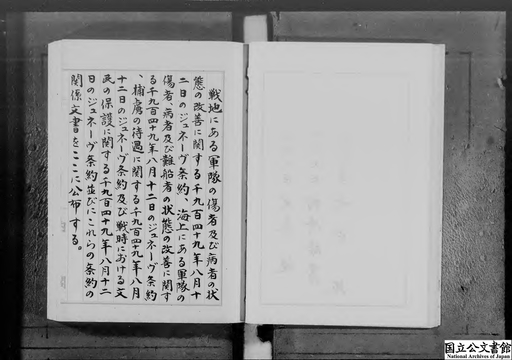 戦地にある軍隊の傷者及び病者の状
態の改善に関する千九百四十九年八月十
二日のジュネーヴ条約、海上にある軍隊の
傷者、病者及び難船者の状態の改善に関す
る千九百四十九年八月十二日のジュネーヴ条約
、捕虜の待遇に関する千九百四十九年八月
十二日のジュネーヴ条約及び戦時における文
民の保護に関する千九百四十九年八月十二
日のジュネーヴ条約並びにこれらの条約の
関係文書をここに公布する。
国立公文書館
National Archives of Japan